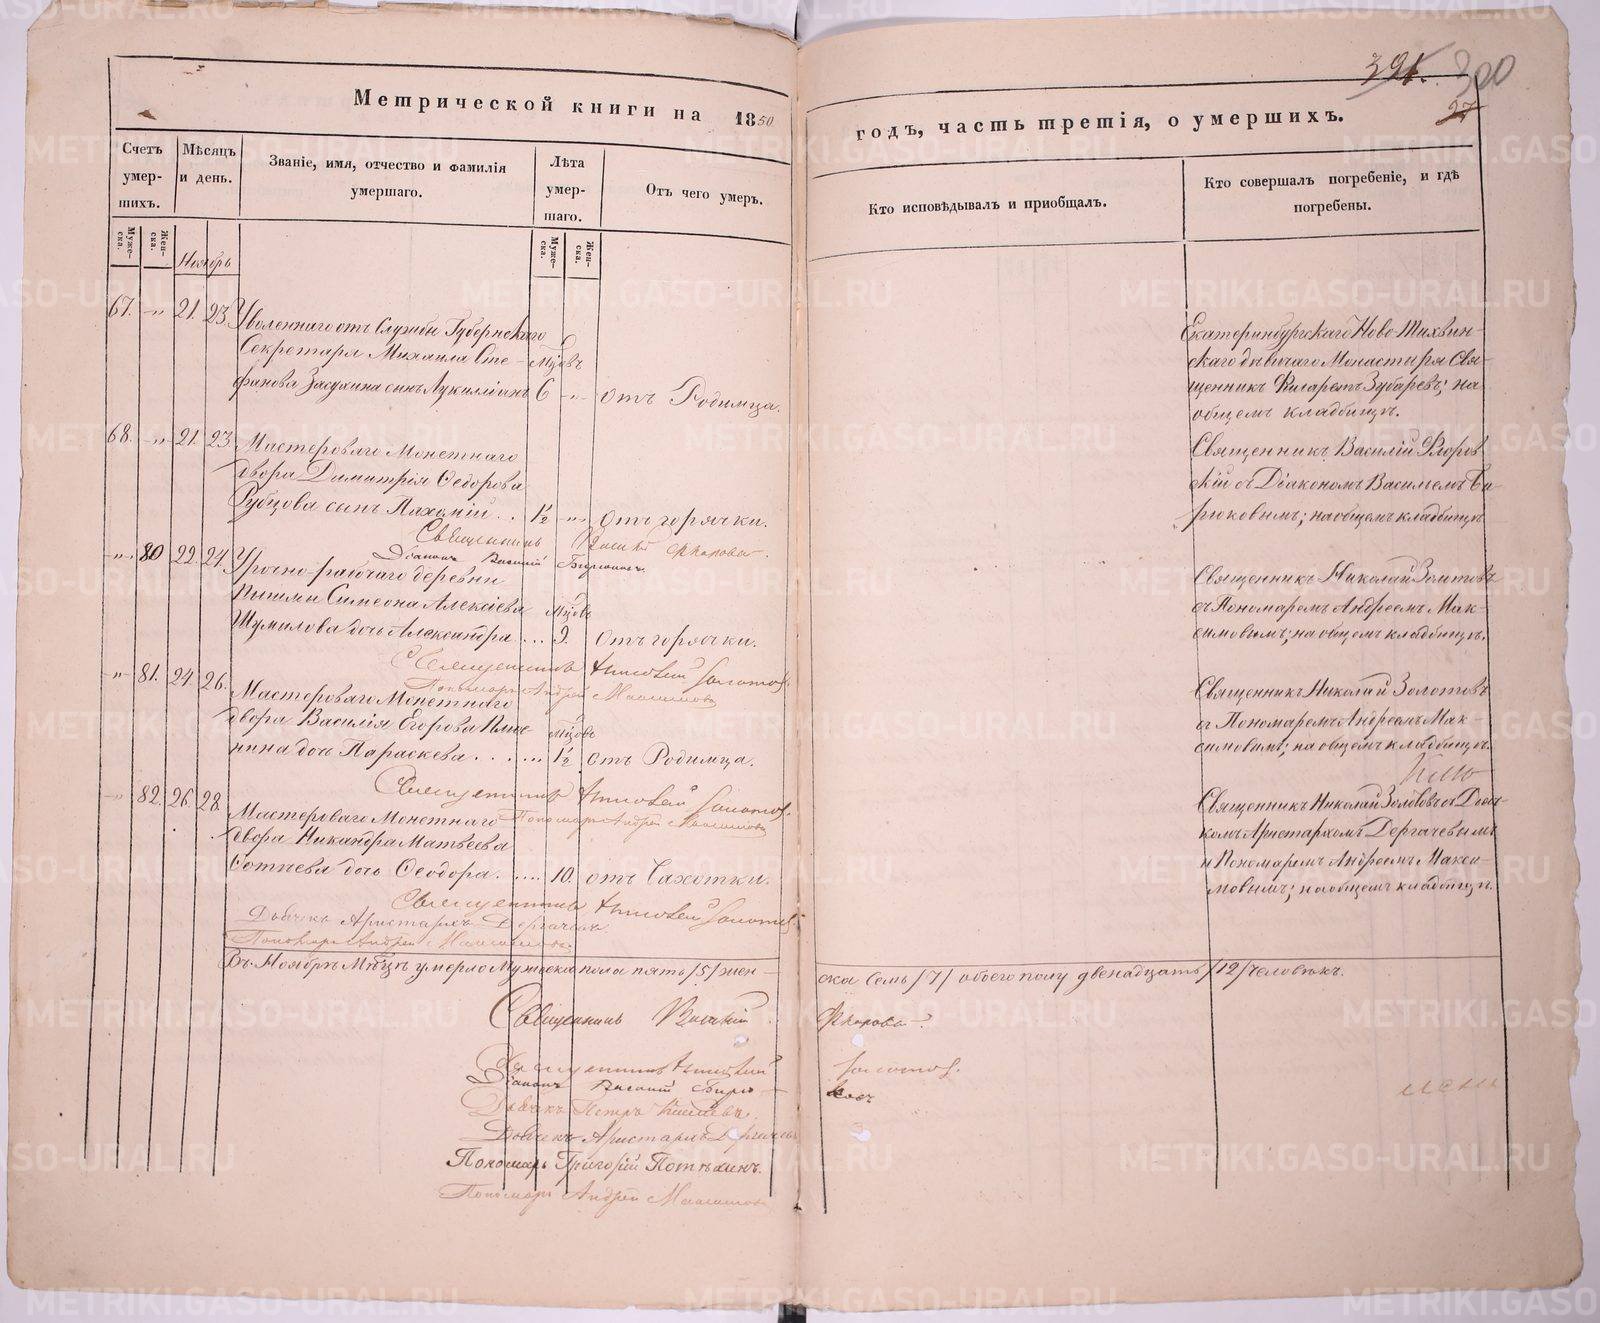 391. 300
27
Метрической книги на 1850
годъ, часть третія, о умершихъ.
Счетъ умер-шихъ.
Мѣсяцъ и день.
Званіе, имя, отчество и фамилія умершаго.
Лѣта умер-шаго.
Отъ чего умеръ.
Кто исповѣдывалъ и пріобщалъ.
Кто совершалъ погребеніе, и гдѣ погребены.
Муже-ска.
Жен-ска.
Муже-ска.
Жен-ска.
Ноябрь
67. -„- 21. 23. Уволеннаго отъ Службы Губернскаго
Секретаря Михаила Сте- Мцовъ
фанова Засухина сынъ Лукилліанъ 6 -„- отъ Родимца.
Екатеринбургскаго Ново-Тихвин-
скаго дѣвичаго Монастыря Свя-
щенникъ Филаретъ Зубаревъ; на
общемъ кладбищѣ.
68. -„- 21. 23. Мастероваго Монетнаго
двора Димитрія Ѳедорова
Рубцова сынъ Пахомій .. 1½ -„- отъ горячки.
Священникъ Василій Флоров
Діаконъ Василій Бирюковъ
Священникъ Василій Флоров
скій съ Діакономъ Васильемъ Би-
рюковымъ; на общемъ кладбищѣ
-„- 80 22. 24. Урочно-рабочаго деревни
Пышмы Симеона Алексіева Мцовъ
Шумилова дочь Александра ... 9. отъ горячки.
Священникъ Николай Золотов.
Пономарь Андрей Максимовъ
Священникъ Николай Золотовъ
съ Пономаремъ Андреемъ Мак-
симовымъ; на общемъ кладбищѣ.
-„- 81. 24. 26. Мастероваго Монетнаго
двора Василія Егорова
дочь Параскева. ..... 1½ отъ Родимца.
Мцовъ
Священникъ Николай Золотов.
Пономарь Андрей Максимовъ
Священникъ Николай Золотовъ
съ Пономаремъ Андреемъ Мак-
симовымъ; на общемъ кладбищѣ.
-„- 82. 26. 28. Мастероваго Монетнаго
двора Никандра Матвѣева
дочь Ѳеодора. ..... 10. отъ Чахотки.
Священникъ Николай Золотов.
Дьячекъ Аристархъ Дергачевъ.
Пономарь Андрей Максимовъ.
Священникъ Николай Золотовъ съ Дьяч-
комъ Аристархомъ Дергачевымъ
и Пономаремъ Андреемъ Макси-
мовымъ; на общемъ кладбищѣ.
Въ Ноябрѣ Мѣсцѣ умерло Мужеска пола пять /5/ жен-
ска Семь /7/ обоего полу двенадцать /12/ человѣкъ.
Священникъ Василій Флоров
Священникъ Николай Золотов.
Діаконъ Василій Бирю-
ковъ
Дьячекъ Петръ
Дьячекъ Аристархъ Дергачевъ
Пономарь Григорій Потѣхинъ.
Пономарь Андрей Максимовъ
METRIKI.GASO-URAL.RU